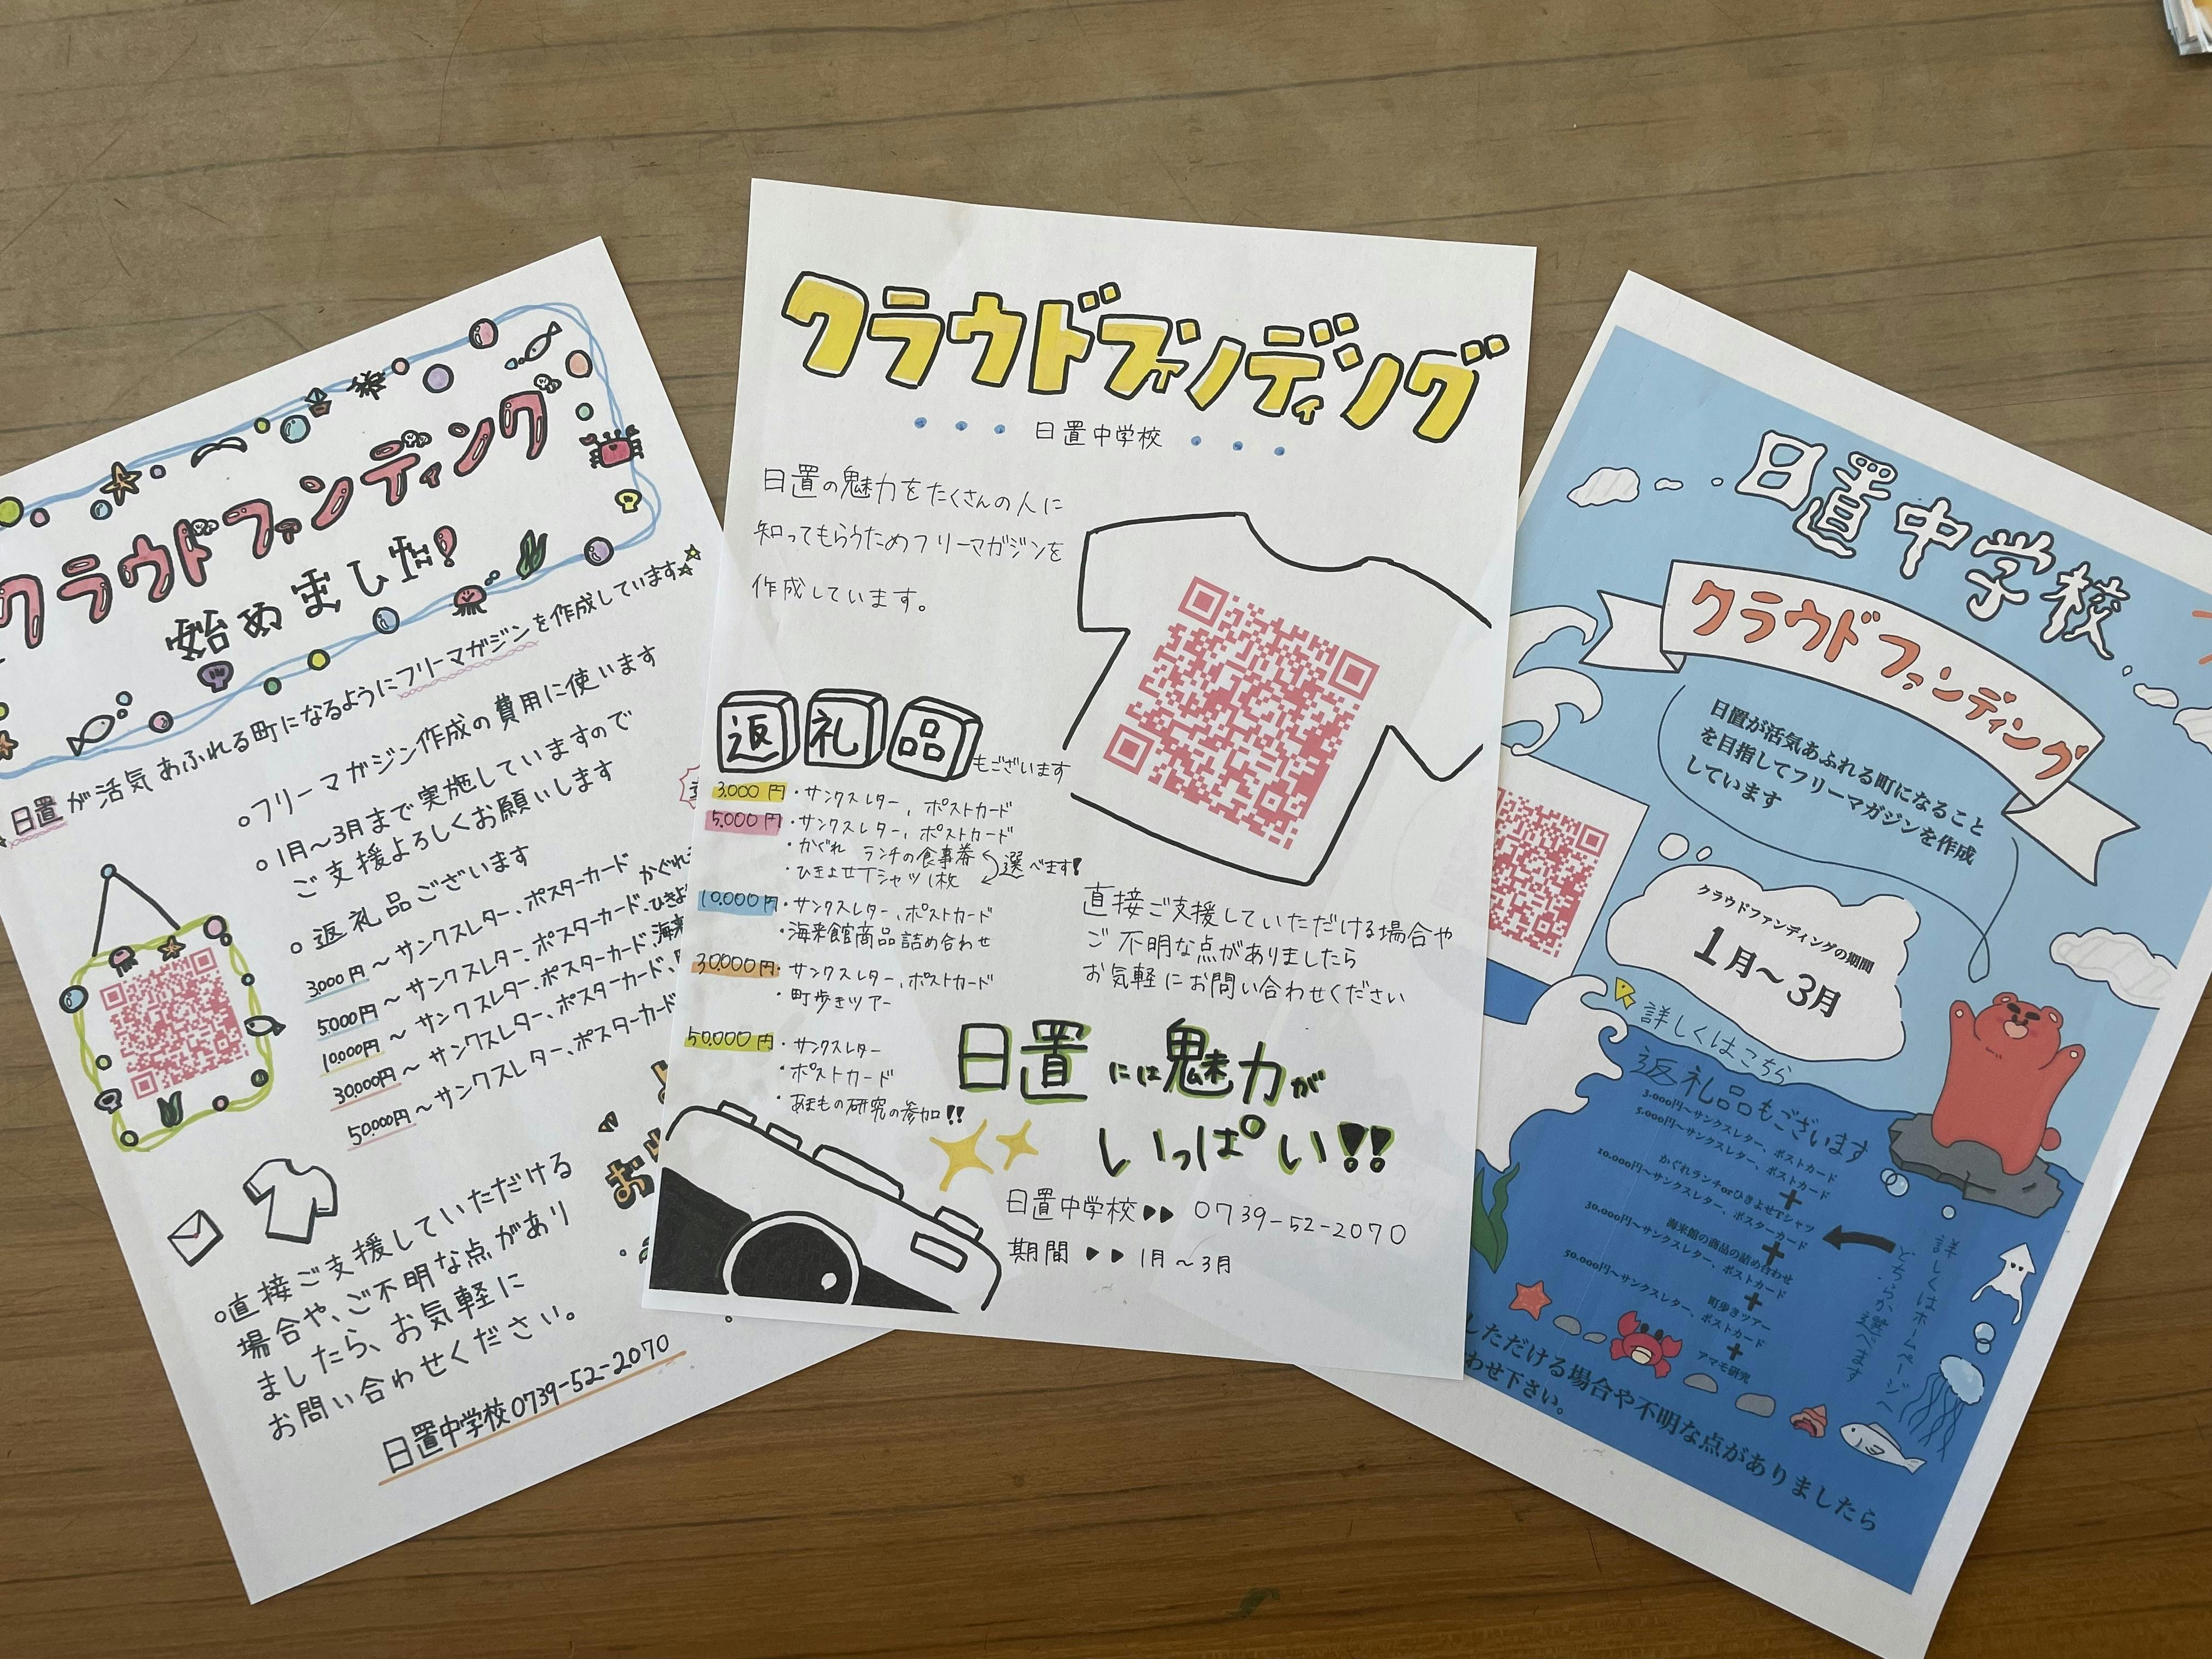 クラウドファンディング
始めました!
日置が活気あふれる町になるようにフリーマガジンを作成しています
○フリーマガジン作成の費用に使います
○1月〜3月まで実施していますので
ご支援よろしくお願いします
○返礼品ございます
3,000円〜サンクスレター、ポスターカード
5,000円〜サンクスレター、ポスターカード かぐれ
10,000円〜サンクスレター、ポスターカード、
30,000円〜サンクスレター、ポスターカード、
50,000円〜サンクスレター、ポスターカード
○直接ご支援していただける
場合や、ご不明な点があり
ましたら、お気軽に
お問い合わせください。
日置中学校0739-52-2070
クラウドファンディング
日置中学校
日置の魅力をたくさんの人に
知ってもらうためフリーマガジンを
作成しています。
返礼品もございます
3,000円・サンクスレター、ポストカード
5,000円・サンクスレター、ポストカード
・かぐれ ランチの食事券
・ひきよせTシャツ1枚 選べます!
10,000円・サンクスレター、ポストカード
・海来館商品詰め合わせ
30,000円・サンクスレター、ポストカード
・町歩きツアー
50,000円・サンクスレター
・ポストカード
・あまもの研究の参加!!
直接ご支援していただける場合や
ご不明な点がありましたら
お気軽にお問い合わせください
日置には魅力が
いっぱい!!
日置中学校▶▶0739-52-2070
期間▶▶1月〜3月
日置中学校
クラウドファンディング
日置が活気あふれる町になること
を目指してフリーマガジンを作成
しています
クラウドファンディングの期間
1月〜3月
詳しくはこちら
返礼品もございます
3,000円〜サンクスレター、ポストカード
5,000円〜サンクスレター、ポストカード
+
かぐれランチorひきよせTシャツ
10,000円〜サンクスレター、ポスターカード
+
海来館の商品の詰め合わせ
30,000円〜サンクスレター、ポストカード
+
町歩きツアー
50,000円〜サンクスレター、ポストカード
+
アマモ研究
詳しくはホームページへ
どちらか選べます
しただける場合や不明な点がありましたら
わせ下さい。